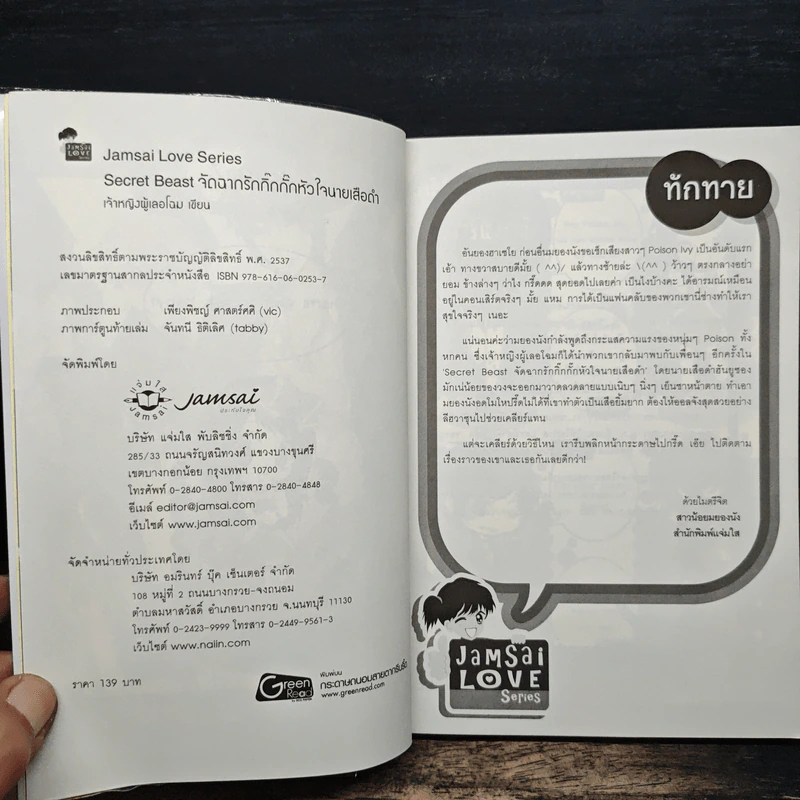 JaMSai
LOVE
Series
Jamsai Love Series
Secret Beast จัดฉากรักกิ๊กกั๊กหัวใจนายเสือดำ
เจ้าหญิงผู้เลอโฉม เขียน
สงวนลิขสิทธิ์ตามพระราชบัญญัติลิขสิทธิ์ พ.ศ. 2537
เลขมาตรฐานสากลประจำหนังสือ ISBN 978-616-06-0253-7
ภาพประกอบ เพียงพิชญ์ ศาสตร์ศศิ (vic)
ภาพการ์ตูนท้ายเล่ม จันทนี ธิติเลิศ (tabby)
จัดพิมพ์โดย
แจ่มใส
Jamsai
Jamsai
ประทับใจคุณ
บริษัท แจ่มใส พับลิชชิ่ง จำกัด
285/33 ถนนจรัญสนิทวงศ์ แขวงบางขุนศรี
เขตบางกอกน้อย กรุงเทพฯ 10700
โทรศัพท์ 0-2840-4800 โทรสาร 0-2840-4848
อีเมล์ editor@jamsai.com
เว็บไซต์ www.jamsai.com
จัดจำหน่ายทั่วประเทศโดย
บริษัท อมรินทร์ บุ๊ค เซ็นเตอร์ จำกัด
108 หมู่ที่ 2 ถนนบางกรวย-จงถนอม
ตำบลมหาสวัสดิ์ อำเภอบางกรวย จ.นนทบุรี 11130
โทรศัพท์ 0-2423-9999 โทรสาร 0-2449-9561-3
เว็บไซต์ www.naiin.com
ราคา 139 บาท
Green
Read
พิมพ์บน
กระดาษถนอมสายตากรีนรี้ด
www.greenread.com
ทักทาย
อันยองฮาเซโย ก่อนอื่นมยองนังขอเช็กเสียงสาวๆ Poison Ivy เป็นอันดับแรก
เอ้า ทางขวาสบายดีมั้ย ( ^^)/ แล้วทางซ้ายล่ะ \(^^ ) ว้าวๆ ตรงกลางอย่า
ยอม ข้างล่างๆ ว่าไง กรี๊ดดด สุดยอดไปเลยค่า เป็นไงบ้างคะ ได้อารมณ์เหมือน
อยู่ในคอนเสิร์ตจริงๆ มั้ย แหม การได้เป็นแฟนคลับของพวกเขานี่ช่างทำให้เรา
สุขใจจริงๆ เนอะ
แน่นอนค่ะว่ามยองนังกำลังพูดถึงกระแสความแรงของหนุ่มๆ Poison ทั้ง
หกคน ซึ่งเจ้าหญิงผู้เลอโฉมก็ได้นำพวกเขากลับมาพบกับเพื่อนๆ อีกครั้งใน
'Secret Beast จัดฉากรักกิ๊กกั๊กหัวใจนายเสือดำ' โดยนายเสือดำฮันยูซอง
มักเน่น้อยของวงจะออกมาวาดลวดลายแบบเนิบๆ นิ่งๆ เย็นชาหน้าตาย ทำเอา
มยองนังอดไม่ไหวปรี๊ดไม่ได้ที่เขาทำตัวเป็นเสือยิ้มยาก ต้องให้ออลจังสุดสวยอย่าง
ลีฮวาซุนไปช่วยเคลียร์แทน
แต่จะเคลียร์ด้วยวิธีไหน เรารีบพลิกหน้ากระดาษไปกรี๊ด เอ๊ย ไปติดตาม
เรื่องราวของเขาและเธอกันเลยดีกว่า!
ด้วยไมตรีจิต
สาวน้อยมยองนัง
สำนักพิมพ์แจ่มใส
JaMSai
LOVE
Series